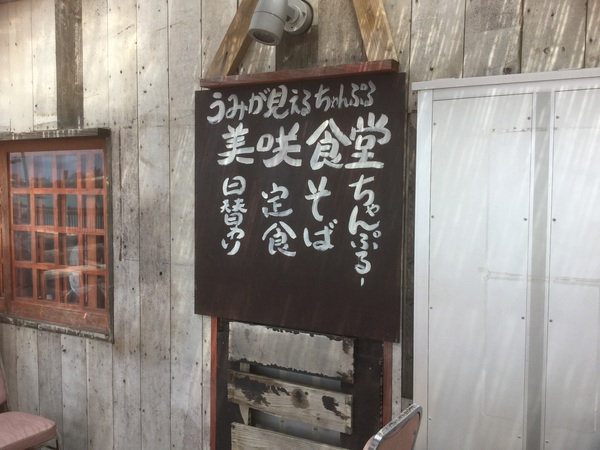 うみが見えるちゃんぷる
美咲食堂
ちゃんぷるー
そば
定食
日替わり